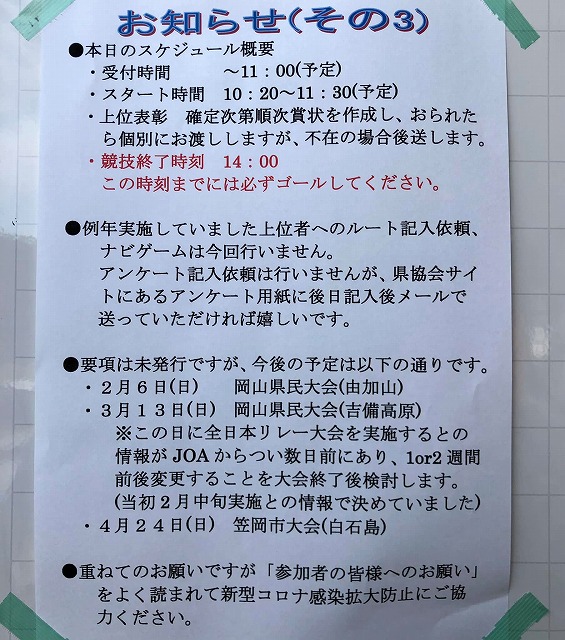 お知らせ(その3)
●本日のスケジュール概要
・受付時間　　　～11：00(予定)
・スタート時間　10：20～11：30(予定)
・上位表彰　確定次第順次賞状を作成し、おられた
ら個別にお渡ししますが、不在の場合後送します。
・競技終了時刻　14：00
この時刻までには必ずゴールしてください。
●例年実施していました上位者へのルート記入依頼、
ナビゲームは今回行いません。
アンケート記入依頼は行いませんが、県協会サイ
トにあるアンケート用紙に後日記入後メールで
送っていただければ嬉しいです。
●要項は未発行ですが、今後の予定は以下の通りです。
・２月６日(日)　　岡山県民大会(由加山)
・３月１３日(日)　岡山県民大会(吉備高原)
※この日に全日本リレー大会を実施するとの
情報が JOA からつい数日前にあり、1or2 週間
前後変更することを大会終了後検討します。
(当初２月中旬実施との情報で決めていました)
・４月２４日(日)　笠岡市大会(白石島)
●重ねてのお願いですが「参加者の皆様へのお願い」
をよく読まれて新型コロナ感染拡大防止にご協
力ください。